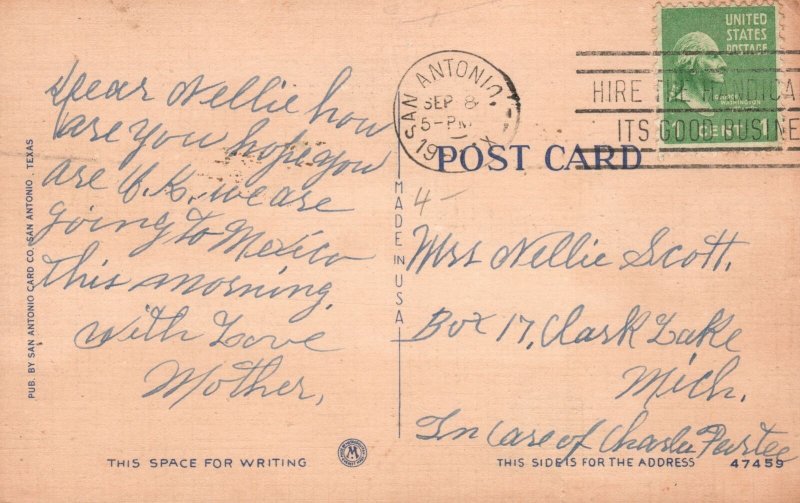 Dear Nellie how
are you hope you
are O.K. we are
going to Mexico
this morning.
With Love
Mother,
PUB. BY SAN ANTONIO CARD CO. SAN ANTONIO, TEXAS
THIS SPACE FOR WRITING
MADE IN USA
SAN ANTONIO,
SEP 8
5-PM
19
HIRE THE HANDICA
ITS GOOD BUSINE
UNITED
STATES
POSTAGE
GEORGE
WASHINGTON
CENT 1
POST CARD
4-
Mrs Nellie Scott.
Box 17, Clark Lake
Mich.
In care of Charlie
THIS SIDE IS FOR THE ADDRESS
47459